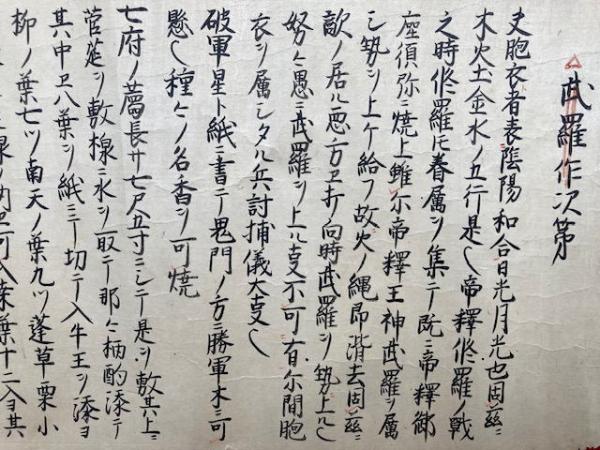 武羅作次第
夫胞衣者表陰陽和合日光月光也因茲ニ
木火土金水ノ五行是〆帝釋修羅ノ戦
之時修羅ハ眷属ヲ集テ既ニ帝釋御
座須弥ニ焼上雖尓帝釋王神武羅ヲ属
シ勢ヲ上ケ給フ故火ノ縄即潜去因茲ニ
敵ノ居ル悪方ヱ打向時武羅ヲ勢上ル〆
努々愚ニ武羅ヲ上ル叓不可有尓間胞
衣ヲ属シタル兵討捕儀大叓〆
破軍星ト紙ニ書テ鬼門ノ方ニ勝軍木ニ可
懸〆種々ノ名香ヲ可焼
七府ノ薦長サ七尺五寸ニシテ是ヲ敷其上ニ
菅莚ヲ敷樣ニ水ヲ取テ那々柄酌添テ
其中ヱ八葉ヲ紙ニテ切テ入牛王ヲ添ヨ
柳ノ葉七ツ南天ノ葉九ツ蓬草栗小
可入桑葉十二合其